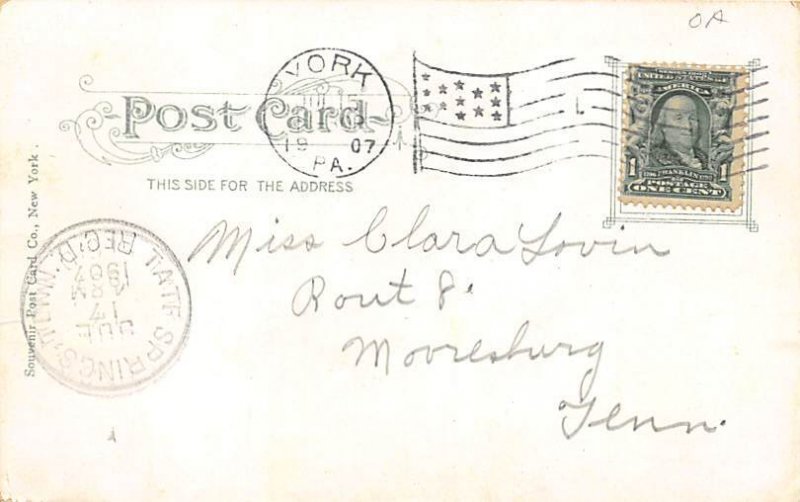 OA
YORK
19 07
PA.
POST CARD
THIS SIDE FOR THE ADDRESS
SERIES 1902
UNITED STATES OF
AMERICA
1 1
FRANKLIN
POSTAGE
ONE CENT
Souvenir Post Card Co., New York.
TATE SPRINGS, TENN.
JUL
17
8 AM
1907
REC'D.
Miss Clara Lovin
Rout 8.
Mooresburg
Tenn.